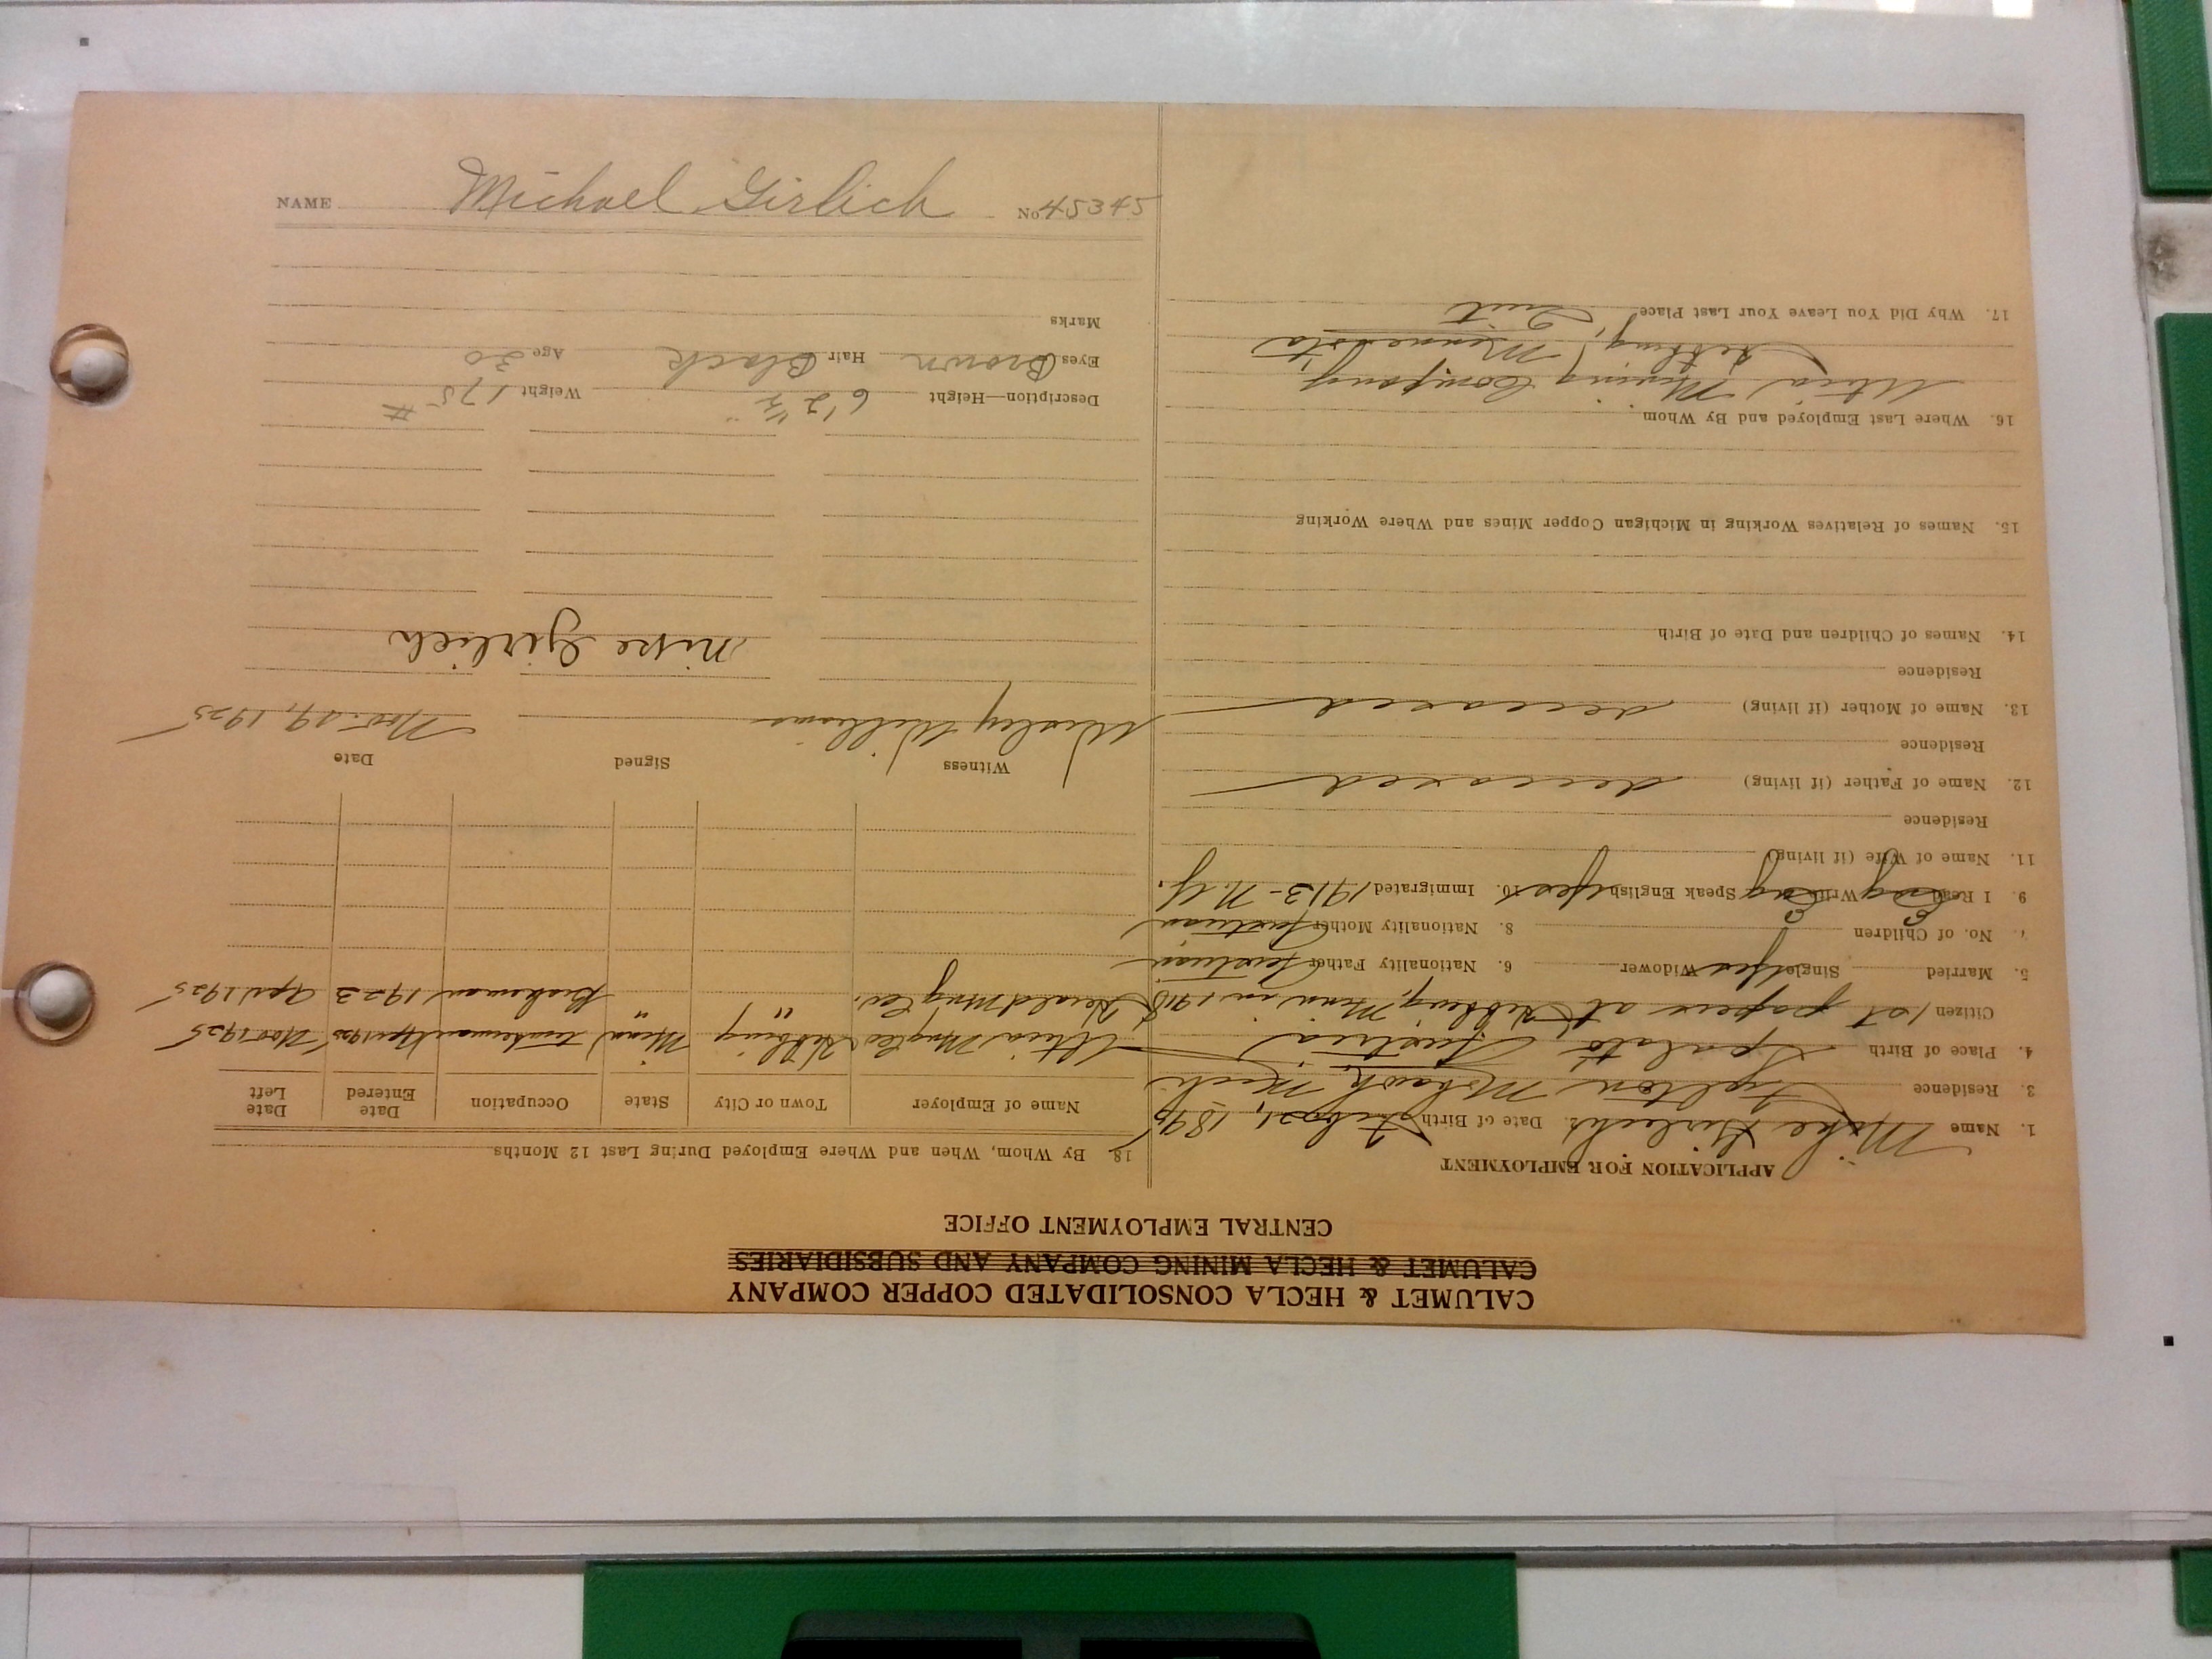 NAME Michael Girlich No 45345
CALUMET & HECLA CONSOLIDATED COPPER COMPANY
CALUMET & HECLA MINING COMPANY AND SUBSIDIARIES
CENTRAL EMPLOYMENT OFFICE
APPLICATION FOR EMPLOYMENT
1. Name Mike Girlich 2. Date of Birth 1895
3. Residence Mohawk, Mich
4. Place of Birth Spalato Austria
Citizen 1st papers at Hibbing, Minn in 1918
5. Married Single Yes Widower 6. Nationality Father Austrian
7. No. of Children 8. Nationality Mother Austrian
9. I Read Eng Write Eng Speak English Yes 10. Immigrated 1913 - N.Y.
11. Name of Wife (if living)
Residence
12. Name of Father (if living) deceased
Residence
13. Name of Mother (if living) deceased
Residence
14. Names of Children and Date of Birth
15. Names of Relatives Working in Michigan Copper Mines and Where Working
16. Where Last Employed and By Whom
Utica Mining Company
Hibbing, Minnesota
17. Why Did You Leave Your Last Place? Quit
18. By Whom, When and Where Employed During Last 12 Months
Name of Employer Town or City State Occupation Date Entered Date Left
Utica Mng Co Hibbing Minn 1925 Nov 1925
Harold Mng Co. " " Brakeman 1923 Apr 1925
Witness Signed Date
Wesley Williams Nov. 19, 1925
Mike Girlich
Description—Height 6' 2 1/2" Weight 175 #
Eyes Brown Hair Black Age 30
Marks